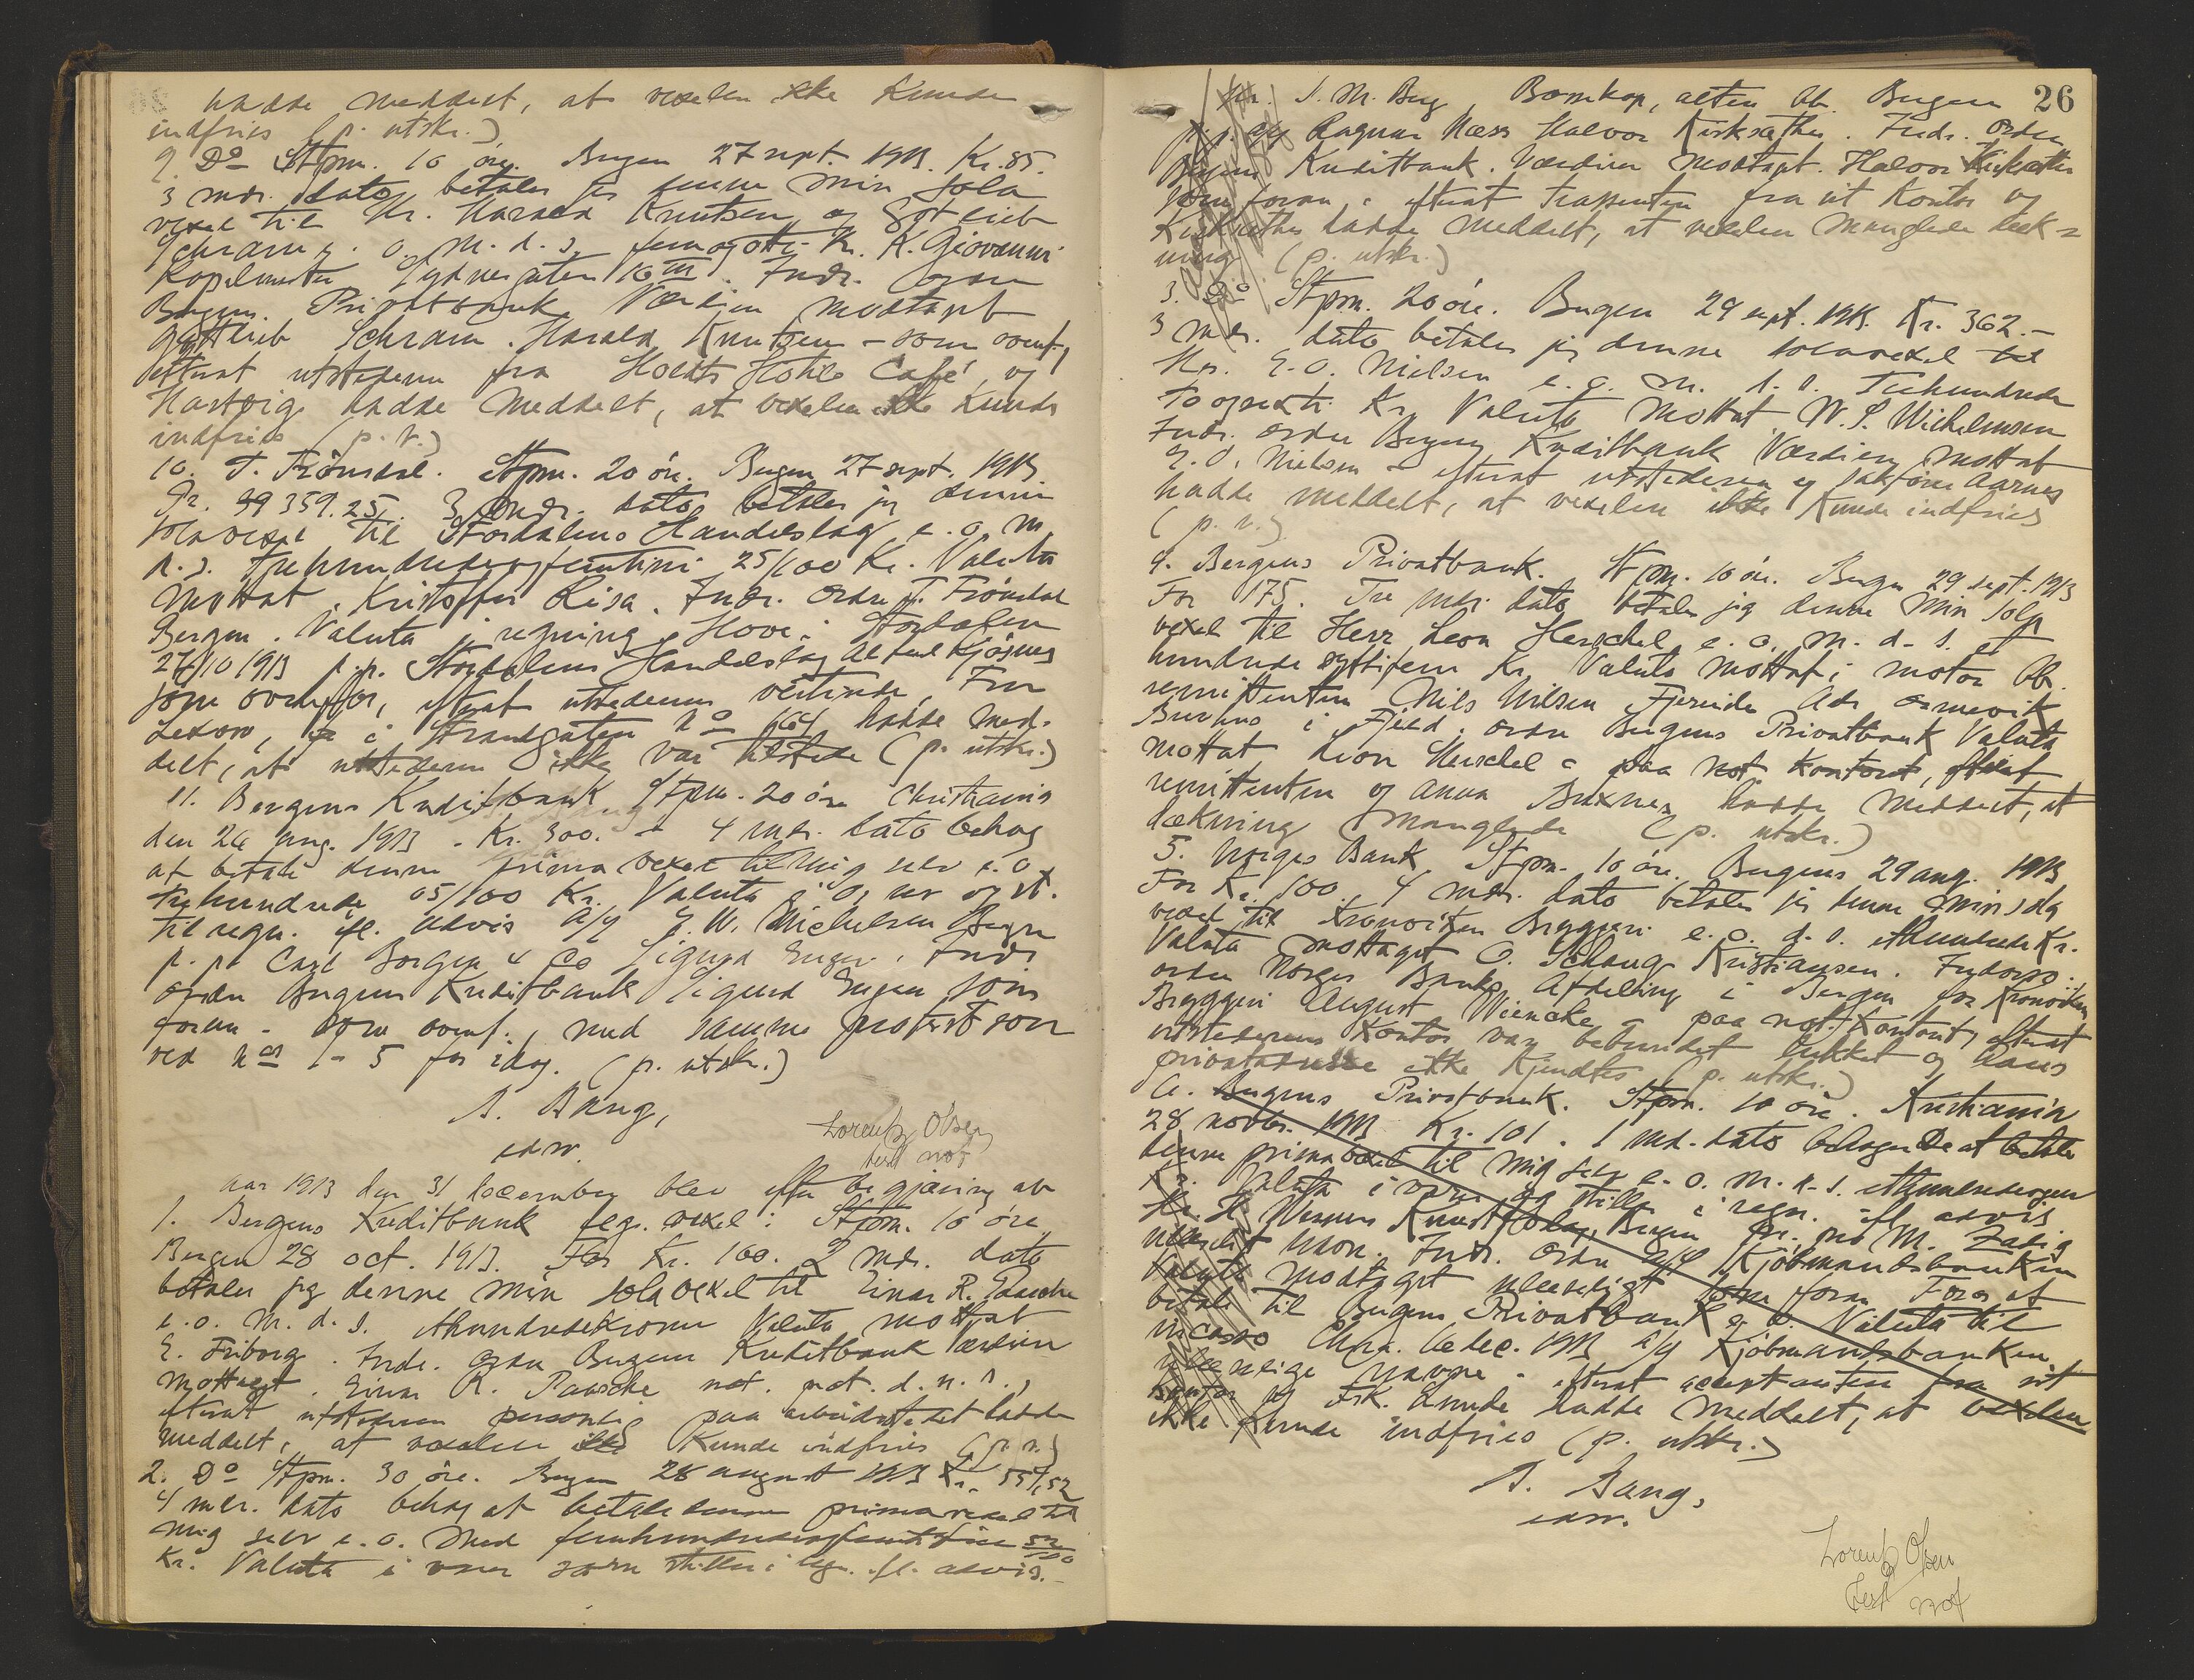 hadde meddelt, at vexelen ikke kunde
indfries (p. utskr.)
9. Do Stpm. 10 øre. Bergen 27 sept. 1913. Kr. 85.
3 mdr. dato betaler jeg denne min sola
vexel til Hr. Harald Knutsen og Gotlieb
Schram e. o. m. d. s. femogotti Kr. K. Giovanni
Kapelmester Sydnesgaten 10 III. Indr. ordre
Bergens Privatbank Værdien modtaget
Gottlieb Schram. Harald Knutsen – som ovenf.,
efterat utstederen fra Holdts Hotels Café, og
Hartvig hadde meddelt, at vexelen ikke kunde
indfries (p. r.)
10. T. Frönsdal. Stpm. 20 øre. Bergen 27 sept. 1913.
Kr. 359.25. 3 mdr. dato betaler jeg denne
solavexel til Stordalens Handelslag e. o. m.
d. s. trehundredeogfemtini 25/100 Kr. Valuta
mottat. Kristoffer Risa. Indr. Ordre T. Frönsdal
Bergen. Valuta i regning. Hove i Stordalen
27/10 1913 p. p. Stordalens Handelslag
som ovenfor, efterat utstederens værtinde, Fru
i Strandgaten No 164 hadde med-
delt, at utstederen ikke var tilstede (p. utskr.)
11. Bergens Kreditbank. Stpm. 20 øre Christiania
den 26 aug. 1913. Kr. 300. – 4 mdr. dato behag
at betale denne prima vexel til mig selv e. o.
trehundrede 05/100 Kr. Valuta
til regn. ifl. advis a/g E. W. Michelsen Bergen
p. p. Carl Borgen & Co Sigurd Enger. Indr.
ordre Bergens Kreditbank Sigurd Enger som
foran – som ovenf., med samme protest som
ved No 1 – 5 for idag. (p. utskr.)
A. Bang,
edsv.
Lorentz Olsen
test not
Aar 1913 den 31 december blev efter begjæring av
1. Bergens Kreditbank flg. vexel: Stpm. 10 øre
Bergen 28 oct. 1913. For Kr. 100. 2 mdr. dato
betaler jeg denne min sola vexel til Einar R. Paasche
e. o. m. d. s. ethundredekroner Valuta mottat
E. Friborg. Indr. Ordre Bergens Kreditbank Værdien
mottaget. Einar R. Paasche not. prot. d. n. s.,
efterat utstederen personlig paa arbeidsstedet hadde
meddelt, at vexelen ikke kunde indfries (p. r.)
2. Do Stpm. 30 øre. Bergen 28 august 1913 Kr. 554,52
4 mdr. dato behag at betale denne primavexel til
mig selv e. o. med femhundredeogfemtifire 52/100
Kr. Valuta i varer som stilles i regn. ifl. advis. –
26
J. M. Berg, Bosekop, alten bet. Bergen
p. p. Ragnar Næss Halvor Kirksæther. Indr. Ordre
Bergens Kreditbank. Værdien modtaget. Halvor Kirksæther
som foran – efterat trassenten fra sit kontor og
Kirksæther hadde meddelt, at vexelen manglede dæk-
ning (p. utskr.)
3. Do Stpm. 20 øre. Bergen 29 sept. 1913. Kr. 362. –
3 mdr. dato betaler jeg denne solavexel til
Hr. E. O. Nielsen e. o. m. d. s. Trehundrede
to og sexti Kr. Valuta mottat. W. S. Wichelmsen
Indr. ordre Bergens Kreditbank Værdien mottat
E. O. Nielsen – efterat utstederen og sakfører Aarnes
hadde meddelt, at vexelen ikke kunde indfries
(p. r.)
4. Bergens Privatbank. Stpm. 10 øre. Bergen 29 sept. 1913
For 175. Tre mdr. dato betaler jeg denne min sola
vexel til Herr Leon Herschel e. o. m. d. s. et
hundrede syttifem Kr. Valuta mottat i motor bet.
remittenten Nils Nilsen Fjereide Adr.
i Fjeld. ordre Bergens Privatbank Valuta
mottat Leon Herschel – paa not. kontoret, efterat
remittenten og Anna hadde meddelt, at
dækning manglede (p. utskr.)
5. Norges Bank Stpm. 10 øre. Bergen 29 aug. 1913
For Kr. 100. 4 mdr. dato betaler jeg denne min sola
vexel til Kronoiken Bryggeri e. o. d. s. ethundrede Kr.
Valuta mottaget O. Schaug Kristiansen. Indorso.
ordre Norges Banks Afdeling i Bergen for Kronoiken
Bryggeri August Wiencke – paa not. kontoret, efterat
utstederens kontor var beboet lukket og hans
privatadresse ikke kjendtes (p. utskr.)
6. Bergens Privatbank. Stpm. 10 øre. Kristiania
28 novbr. 1913 Kr. 101. 1 md. dato behager De at betale
denne prima vexel til mig selv e. o. m. d. s. ethundredeogen
Kr. Valuta i varer og stilles i regn. ifl. advis
Hr. H. Kunstforlag, Bergen pr. pro M. Zadig
Indr. Ordre a/g Kjøbmandsbanken
Valuta modtaget ulæseligt som foran For os at
betale til Bergens Privatbank e. o. Valuta til
incasso Chra. 6 dec. 1913 a/g Kjøbmandsbanken
ulæselige navne – efterat acceptanten fra sit
kontor og Frk. hadde meddelt, at vexelen
ikke kunde indfries (p. utskr.)
A. Bang,
edsv.
Lorentz Olsen
test not